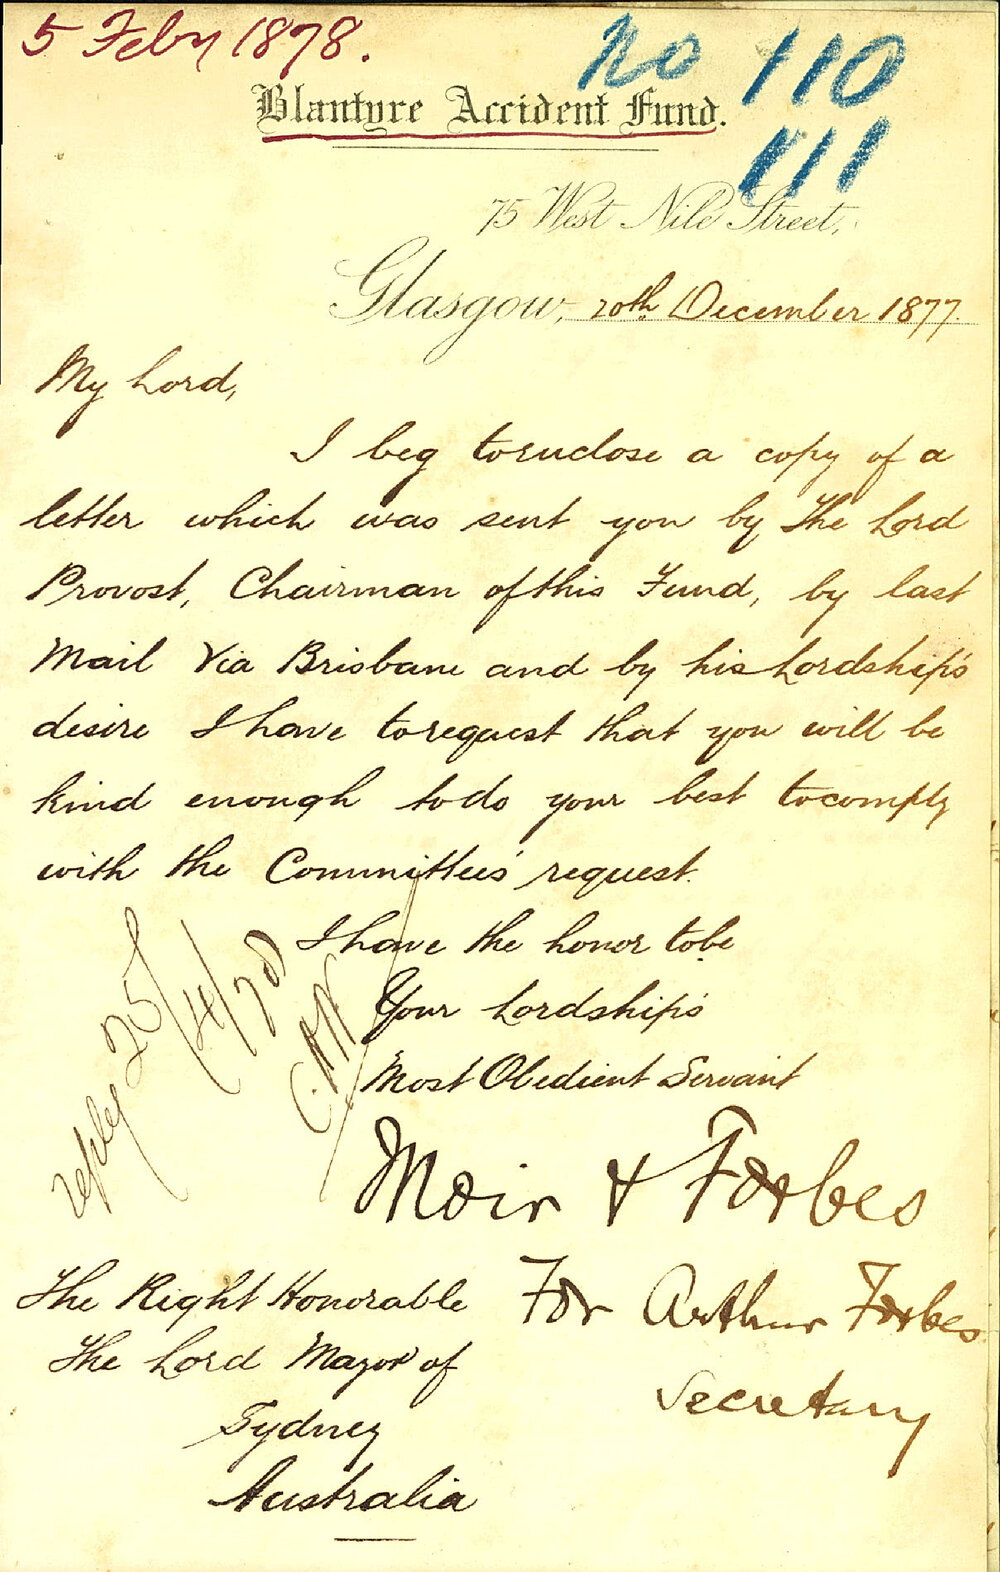 5 Feby 1878.
No 110
111
Blantyre Accident Fund.
75 West Nile Street,
Glasgow, 20th December 1877.
My Lord,
I beg to enclose a copy of a
letter which was sent you by The Lord
Provost, Chairman of this Fund, by last
Mail Via Brisbane and by his Lordship's
desire I have to request that you will be
kind enough to do your best to comply
with the Committee's request.
I have the honor to be
Your Lordship's
Most Obedient Servant
Moir & Forbes
For Arthur Forbes
Secretary
reply 25/4/78
The Right Honorable
The Lord Mayor of
Sydney
Australia